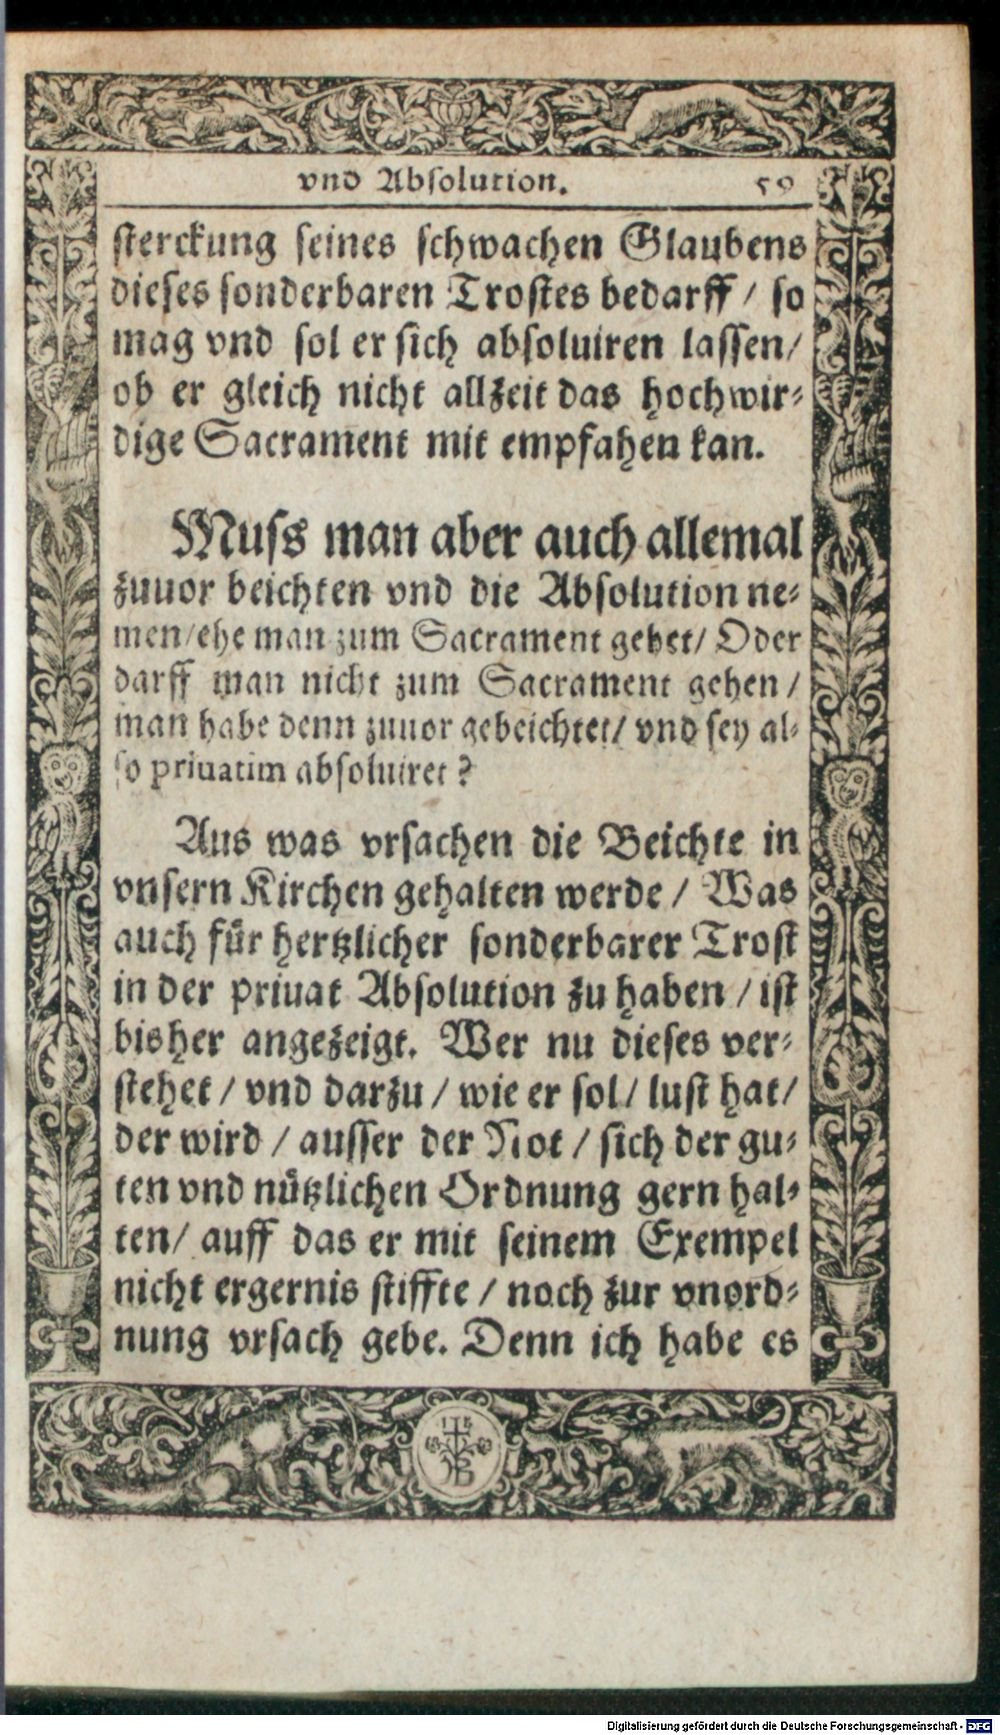 vnd Absolution. 59
sterckung seines schwachen Glaubens
dieses sonderbaren Trostes bedarff / so
mag vnd sol er sich absoluiren lassen/
ob er gleich nicht allzeit das hochwir⸗
dige Sacrament mit empfahen kan.
Muss man aber auch allemal
zuuor beichten vnd die Absolution ne⸗
men/ehe man zum Sacrament gehet/ Oder
darff man nicht zum Sacrament gehen /
man habe denn zuuor gebeichtet/ vnd sey al⸗
so priuatim absoluiret ?
Aus was vrsachen die Beichte in
vnsern Kirchen gehalten werde / Was
auch für hertzlicher sonderbarer Trost
in der priuat Absolution zu haben / ist
bisher angezeigt. Wer nu dieses ver⸗
stehet / vnd darzu / wie er sol/ lust hat/
der wird / ausser der Not / sich der gu⸗
ten vnd nützlichen Ordnung gern hal⸗
ten/ auff das er mit seinem Exempel
nicht ergernis stiffte / noch zur vnord⸗
nung vrsach gebe. Denn ich habe es
Digitalisierung gefördert durch die Deutsche Forschungsgemeinschaft - DFG